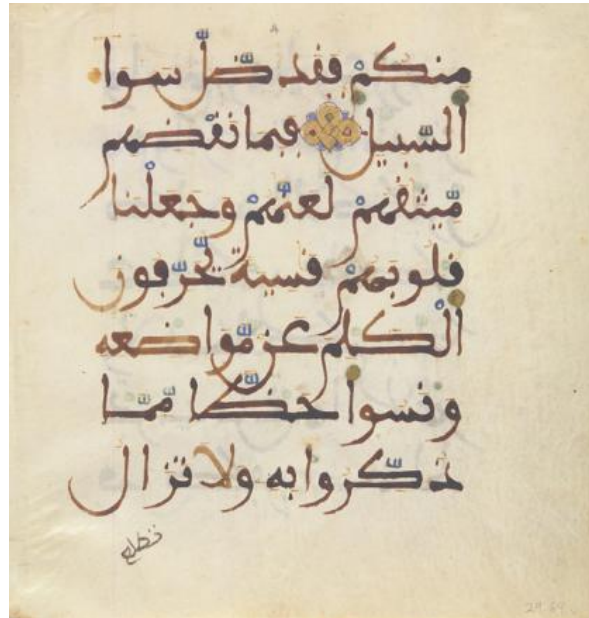 منكم فقد ضلّ سوا
السّبيل فبما نقضهم
مّيثقهم لعنّهم وجعلنا
قلوبهم قسية يحرّفون
الكلم عن مّواضعه
ونسوا حظّا مّمّا
ذكّروا به ولا تزال
تطلع